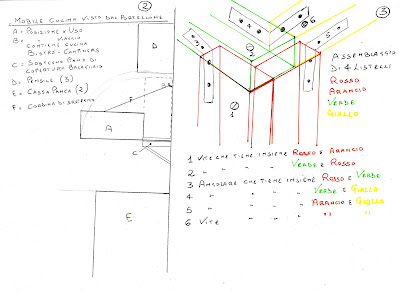 2
MOBILE CUCINA VISTO DAL PORTELLONE
A = POSIZIONE X USO
B = " " VIAGGIO
CONTIENE CUCINA
BISTRO-CAMPINGAZ
C = SOSTEGNO PIANO DI
COPERTURA BAGAGLIO
D = PENSILE (3)
E = CASSA PANCA (2)
F = CORDINA DI SOSTEGNO
D
B
F
A
C
E
3
4
6
5
3
2
1
ASSEMBLAGGIO
DI 4 LISTELLI
ROSSO
ARANCIO
VERDE
GIALLO
1 VITE CHE TIENE INSIEME ROSSO E ARANCIO
2 " " " " VERDE E ROSSO
3 ANGOLARE CHE TIENE INSIEME ROSSO E VERDE
4 " " " " VERDE E GIALLO
5 " " " " ARANCIO E GIALLO
6 VITE " " " " "